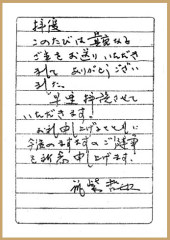 拝復
このたびは貴重なる
ご本をお送りいただき
まして ありがとうござい
ました。
早速 拝読させて
いただきます。
お礼申し上げますとともに
今後のますますのご健筆
をお祈り申し上げます。